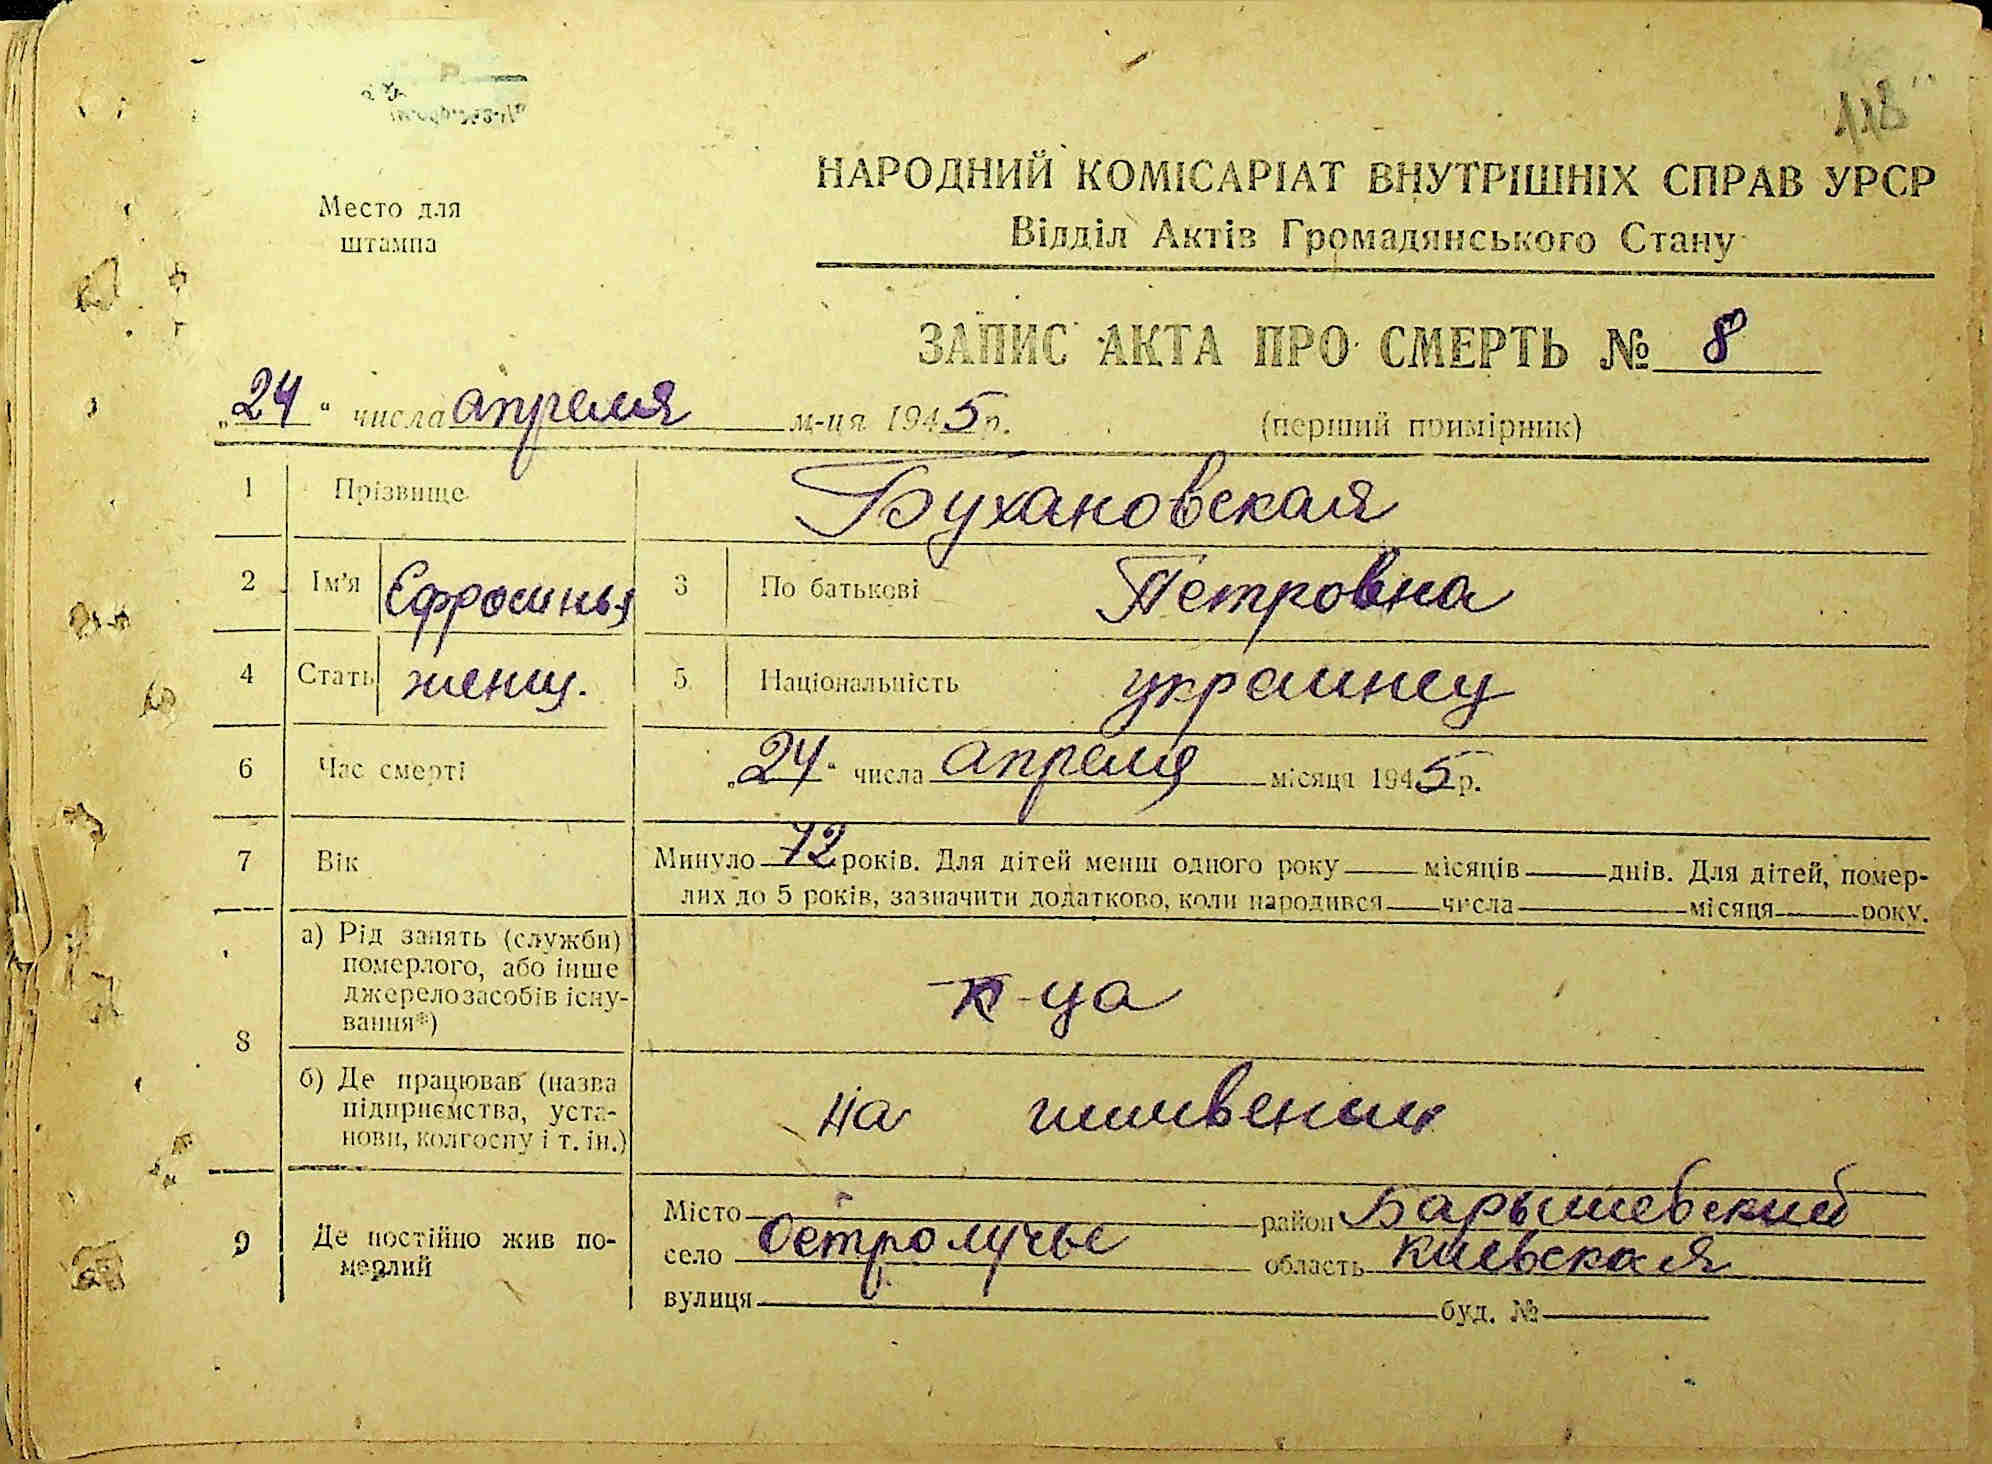 118
НАРОДНИЙ КОМІСАРІАТ ВНУТРІШНІХ СПРАВ УРСР
Место для
штампа
Відділ Актів Громадянського Стану
ЗАПИС АКТА ПРО СМЕРТЬ № 8
„24“ числа апреля м-ця 1945 р. (перший примірник)
1 Прізвище Бухановская
2 Ім'я Єфросинья 3 По батькові Петровна
4 Стать женщ. 5 Національність украинец
6 Час смерті „24“ числа апреля місяця 1945 р.
7 Вік Минуло 72 років. Для дітей менш одного року місяців днів. Для дітей, помер-
лих до 5 років, зазначити додатково, коли народився числа місяця року.
8 а) Рід занять (служби)
померлого, або інше
джерело засобів існу-
вання*) к-ца
б) Де працював (назва
підприємства, уста-
нови, колгоспу і т. ін.) На
9 Де постійно жив по-
мерлий
Місто район Барышевский
село Остролучье область Киевская
вулиця буд. №